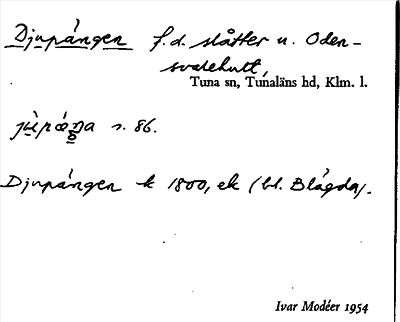 Djupången f.d. slåtter u. Oden-
svalehult,
Tuna sn, Tunaläns hd, Klm. l.
s. 86.
Djupången k 1800, ek (bl. Blågda).
Ivar Modéer 1954